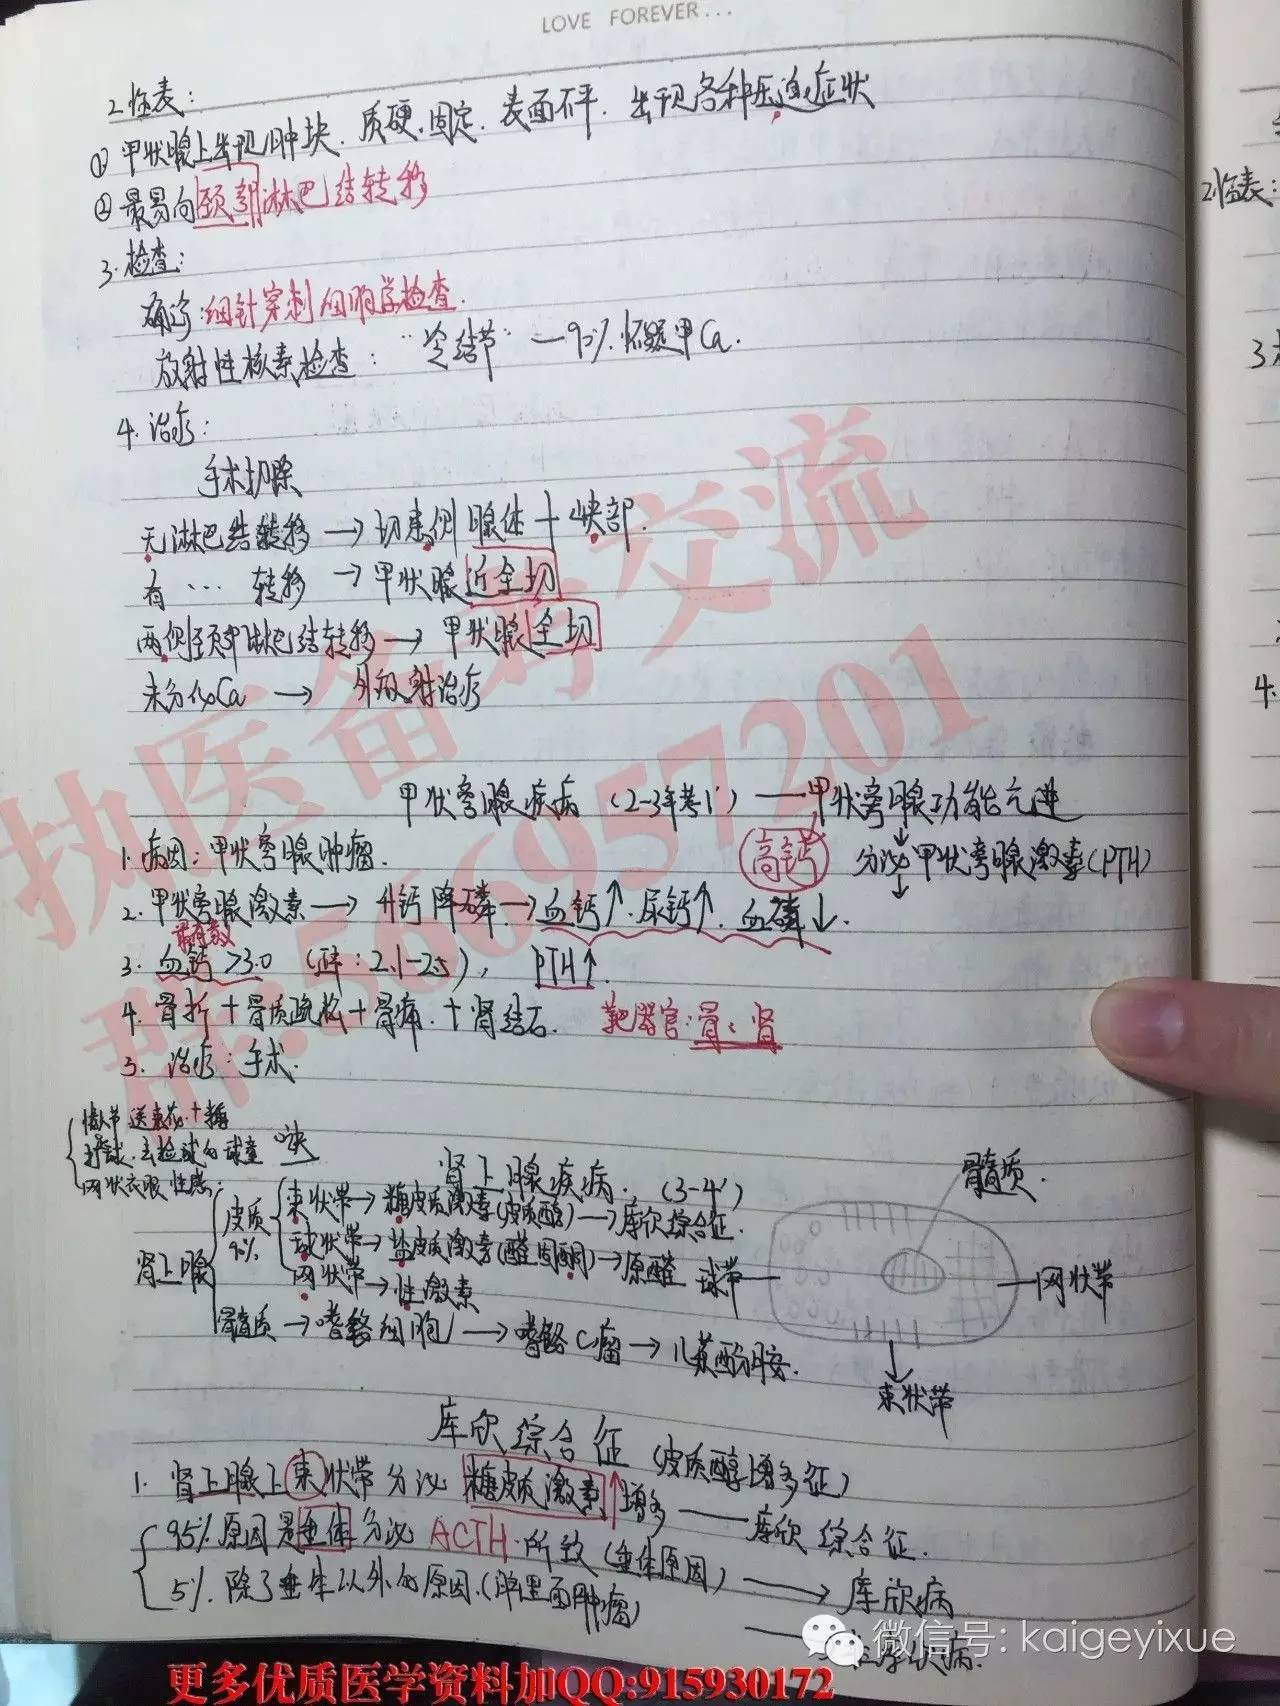 LOVE FOREVER...
2.临表:
① 甲状腺上出现肿块.质硬.固定.表面不平.出现各种压迫症状
② 最易向颈部淋巴结转移
3.检查:
确诊:细针穿刺细胞学检查.
放射性核素检查:"冷结节"—90%怀疑甲Ca.
4.治疗:
手术切除
无淋巴结转移→切患侧腺体+峡部.
有…转移→甲状腺近全切
两侧颈部淋巴结转移→甲状腺全切
未分化Ca→外放射治疗
甲状旁腺疾病(2-3年考1')——甲状旁腺功能亢进
高钙
分泌甲状旁腺激素(PTH)
1.病因:甲状旁腺肿瘤.
2.甲状旁腺激素→升钙降磷→血钙↑.尿钙↑.血磷↓.
3.血钙>3.0(正常:2.1-2.5),PTH↑.
4.骨折+骨质疏松+骨痛.+肾结石.
靶器官:骨、肾
5.治疗:手术.
情人节送束花+糖
球.去捡球的球童
网状衣服性感.
肾上腺疾病.(3-4')
肾上腺
皮质90%
束状带→糖皮质激素(皮质醇)→库欣综合征.
球状带→盐皮质激素(醛固酮)→原醛
网状带→性激素
髓质→嗜铬细胞→嗜铬C瘤→儿茶酚胺.
髓质.
球带
网状带
束状带
库欣综合征(皮质醇增多症)
1.肾上腺上束状带分泌糖皮质激素↑增多——库欣综合征.
95%原因是垂体分泌ACTH所致(垂体原因)→库欣病
5%.除了垂体以外的原因.(肿瘤)
执医备考交流
群:566957201
微信号: kaigeyixue
更多优质医学资料加QQ:915930172
2.临表:
3.
4.